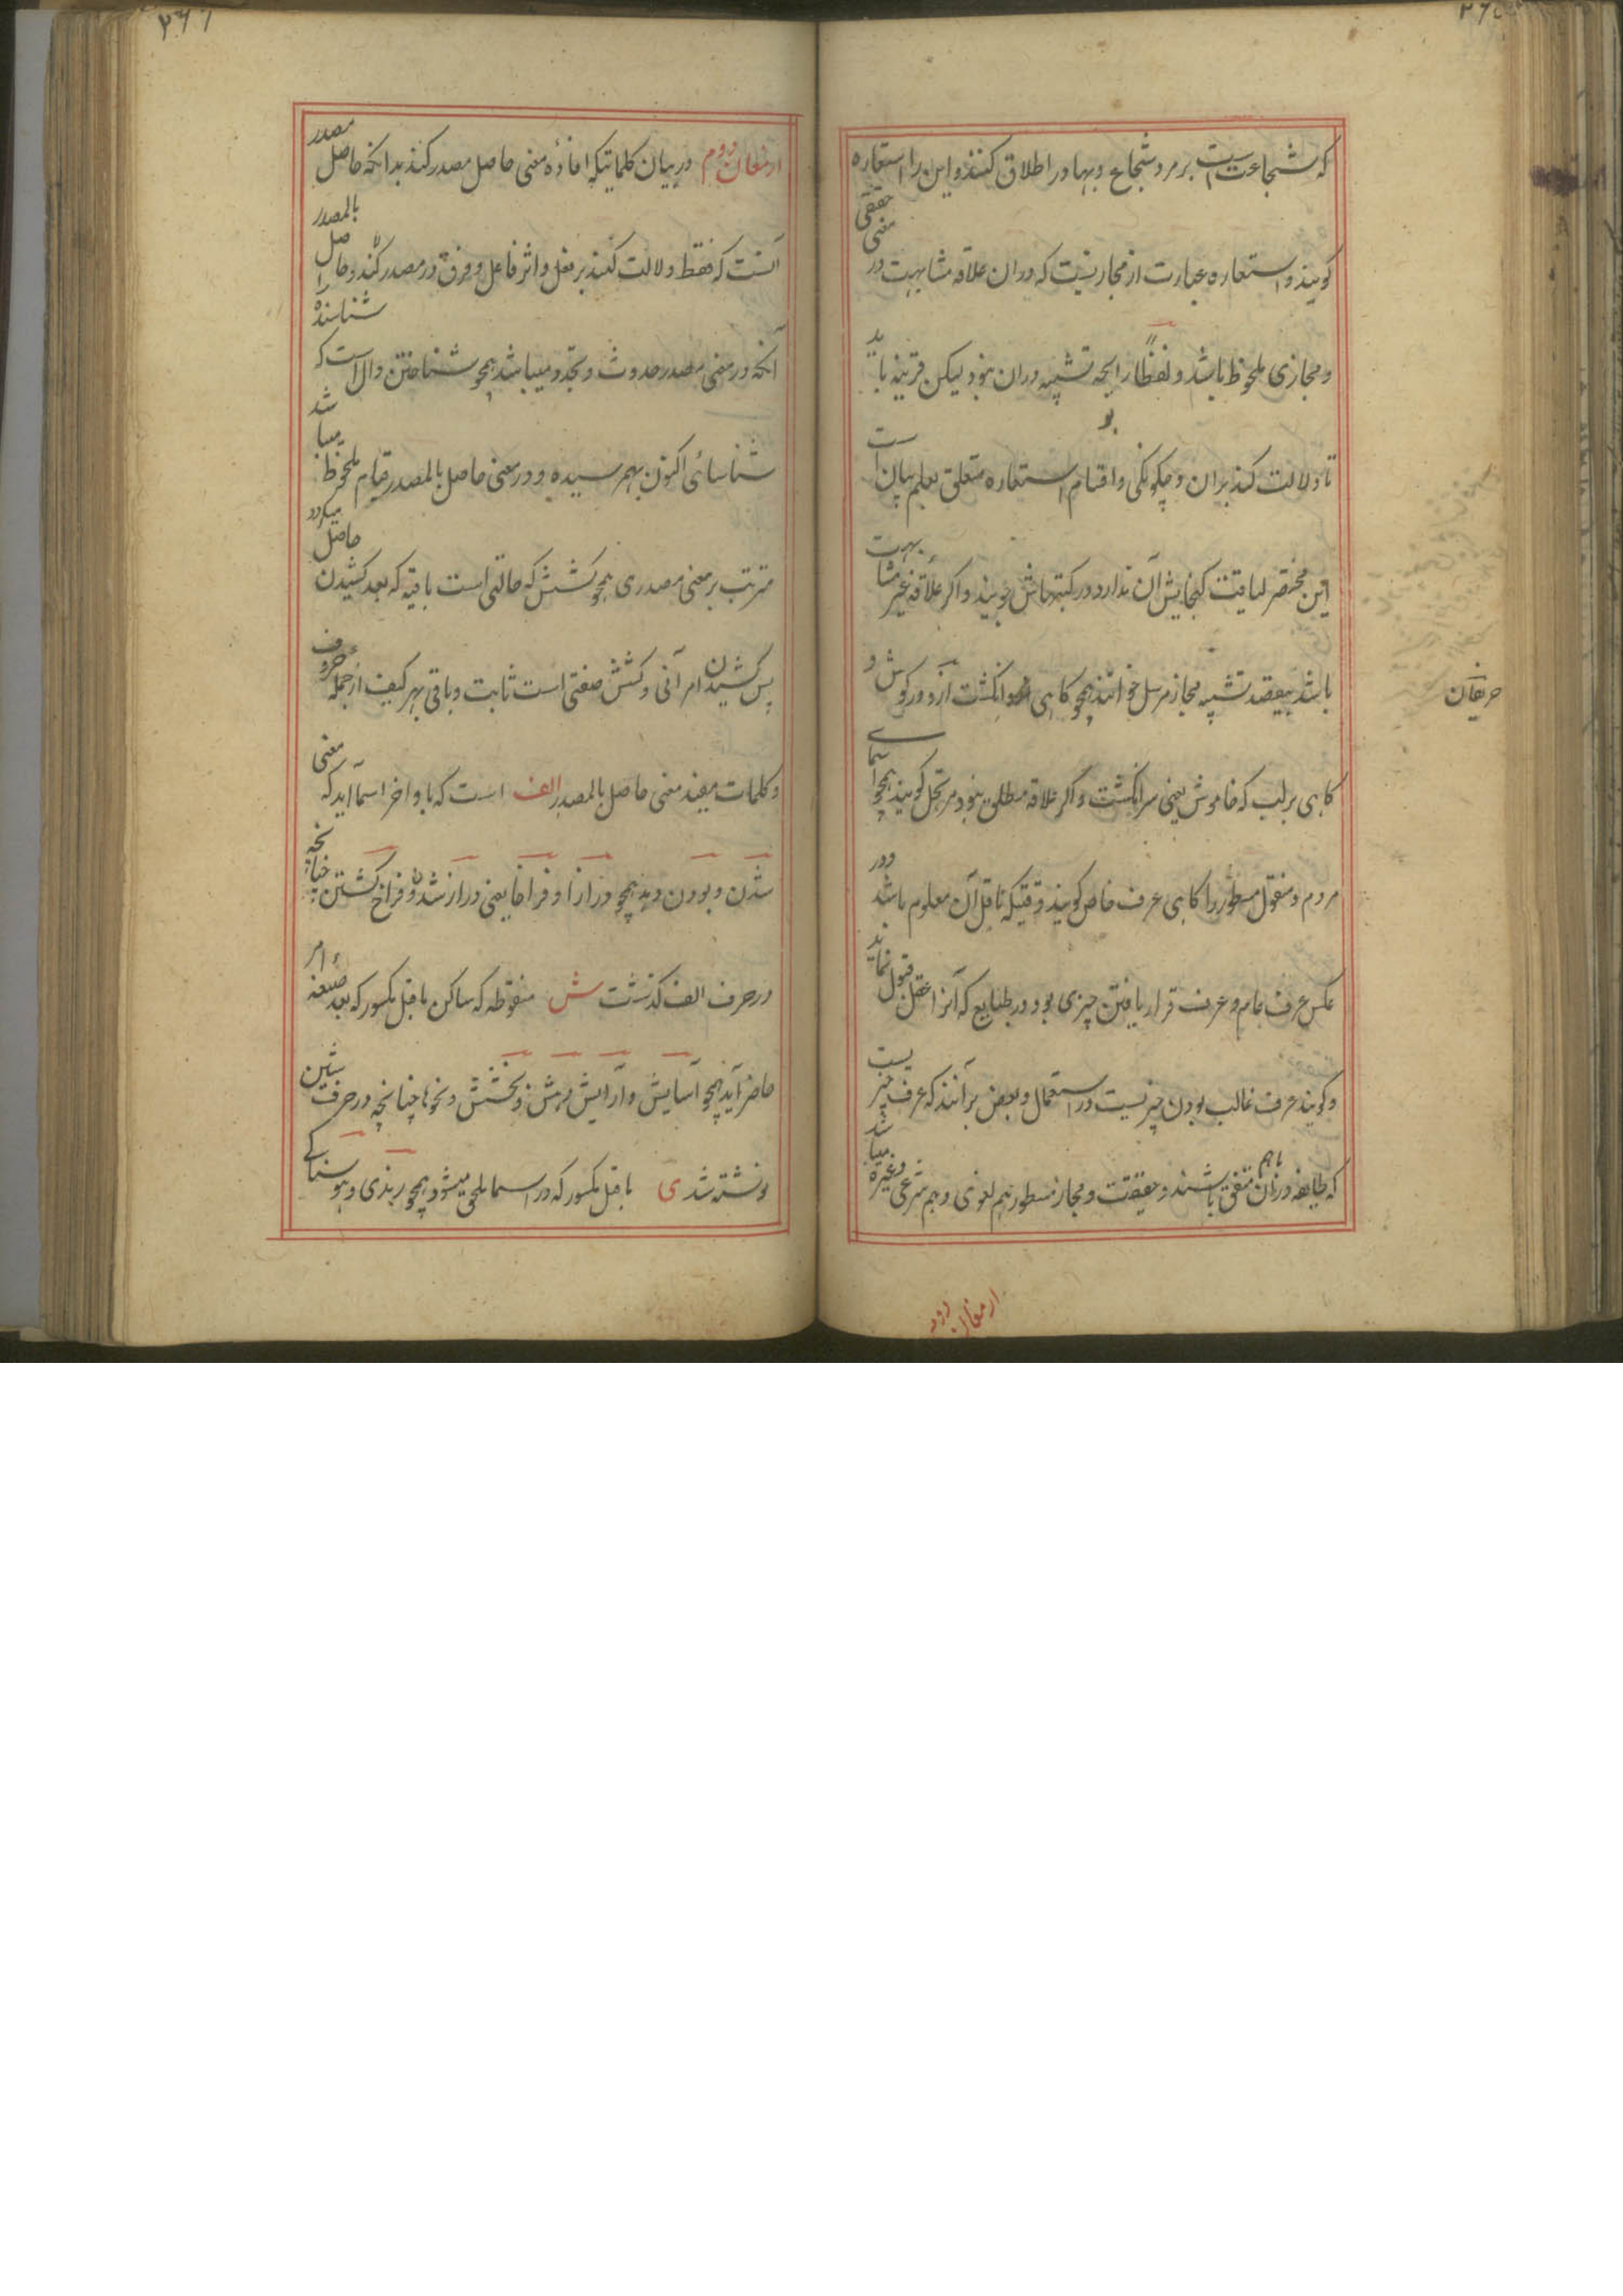 که شجاعت است بر مرد شجاع و بهادر اطلاق کنند و این را استعاره
گویند و استعاره عبارت از مجازیست که دران علاقه مشابهت در معنی حقیقی
و مجازی ملحوظ باشد و لفظاً رایحه تشبیه دران نبود لیکن قرینه باید
تا دلالت کند بران و چگونگی و اقسام استعاره متعلق بعلم بیان است
این مختصر لیاقت گنجایش آن ندارد در کتبهاش جویند و اگر علاقه غیر مشابهت
باشد بیقصد تشبیه مجاز مرسل خوانند همچو کاهی انگشت آرد در گوش و
کاهی بر لب که خاموش یعنی سر انگشت و اگر علاقه مطلق نبود مرتجل گویند همچو اسمای
مردم و منقول مسطور را کاهی عرف خاص گویند وقتیکه ناقل آن معلوم باشد ودر
عکس عرف عام و عرف قرار یافتن چیزی بود در طبایع که آنرا عقل قبول نماید
و گویند عرف غالب بودن چیزیست در استعمال و بعض برآنند که عرف چیزیست
که طایفه دران باهم متفق باشند و حقیقت و مجاز مسطور هم لغوی و هم شرعی وغیره میباشد
حریفان
ارمغان دوم
ارمغان دوم در بیان کلماتیکه افادهٔ معنی حاصل مصدر کنند بدانکه حاصل مصدر
آنست که فقط دلالت کند بر فعل و اثر فاعل و فرق در مصدر کند و حاصل بالمصدر
آنکه در معنی مصدر حدوث و تجدد میباشد همچو شناختن دال است که شناسنده را
شناسائی اکنون بهم رسیده و در معنی حاصل بالمصدر قیام ملحوظ میباشد
مترتب بر معنی مصدری همچو کشش که حالتی است باقیه که بعد کشیدن حاصل میکردد
پس کشیدن امر آنی و کشش صفتی است ثابت و باقی بهر کیف از جمله حروف
و کلمات مفید معنی حاصل بالمصدر الف است که باواخر اسما آید که معنی
شدن و بودن دهد همچو درازا و فراخا یعنی دراز شدن و فراخ گشتن چنانچه
در حرف الف گذشت ش منقوطه که ساکن ماقبل مکسور که بعد صیغهٔ امر
حاضر آید همچو آسایش و آرایش و رمش و بخشش و نحوها چنانچه در حرف شین
نوشته شد ی ماقبل مکسور که در اسما ملحق میشود همچو رندی و هوسناکے